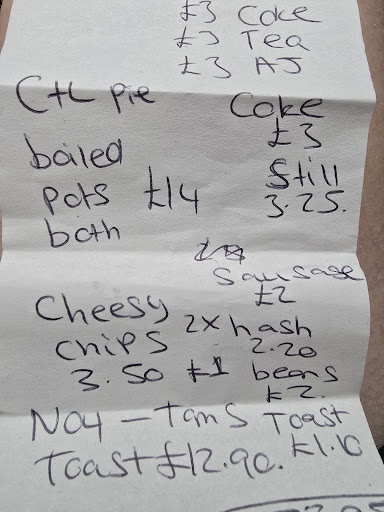 £3 Coke
£3 Tea
£3 AJ
C+L pie
boiled
pots £14
both
Coke
£3
Still
3.25.
Sausage
£2
Cheesy
chips
3.50
2x hash
2.20
£1 beans
£2.
No4 – Toms
Toast £12.90.
Toast
£1.10